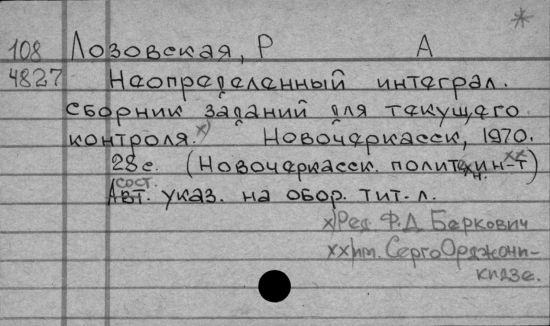 *
108 Лозовская, Р А
4827 Неопределенный интеграл.
сборник заданий для текущего
контроля. х) Новочеркасск, 1970.
28с. (Новочеркасск. политехн. ин-т) хх)
сост.
Авт. указ. на обор. тит. л.
х) Ред. Ф.Д Беркович
хх) им. Серго Орджони-
кидзе.